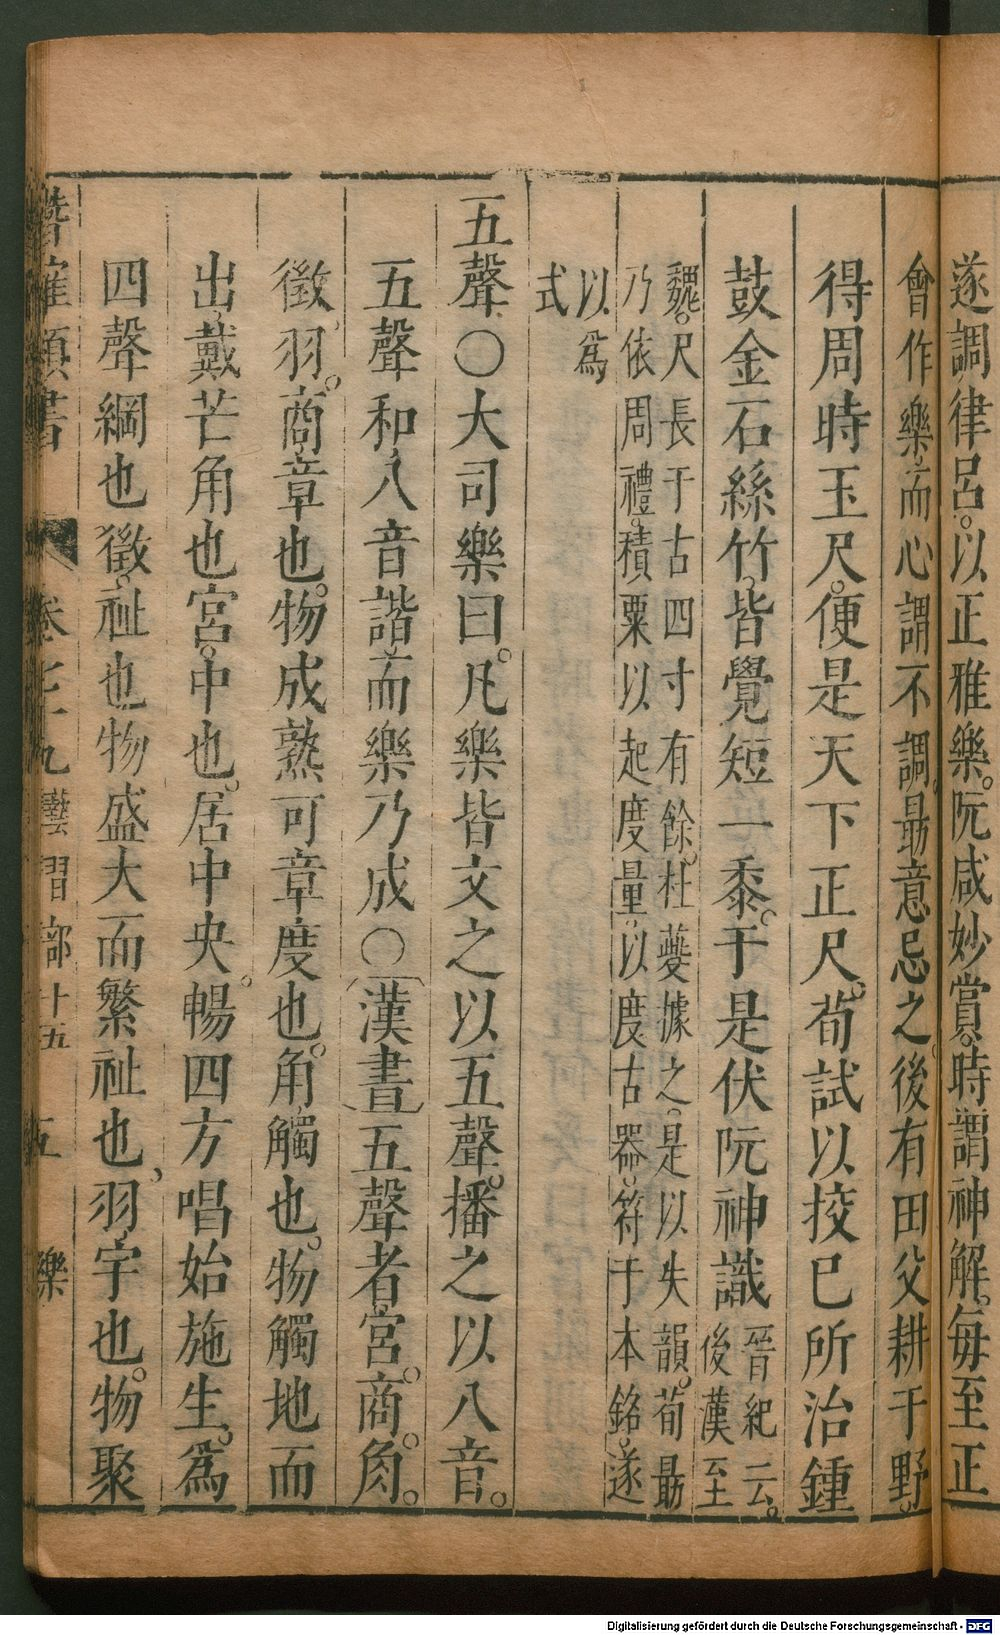 遂調律呂。以正雅樂。阮咸妙賞。時謂神解。每至正
會作樂。而心謂不調。勗意忌之。後有田父耕于野。
得周時玉尺。便是天下正尺。荀試以挍已所治鍾
鼓金石絲竹。皆覺短一黍。于是伏阮神識
晉紀云。
後漢至
魏。尺長于古四寸有餘。杜夔據之。是以失韻。荀勗
乃依周禮。積粟以起度量。以度古器。符于本銘。遂
以爲
式
五聲〇大司樂曰。凡樂皆文之以五聲。播之以八音。
五聲和。八音諧。而樂乃成〇漢書五聲者。宮。商。角。
徵。羽。商。章也。物成熟可章度也。角。觸也。物觸地而
出。戴芒角也宮。中也。居中央。暢四方唱始施生。爲
四聲綱也徵。祉也物盛大而繁祉也。羽。宇也。物聚
卷七十九 藝習部十五 五 樂
Digitalisierung gefördert durch die Deutsche Forschungsgemeinschaft - DFG